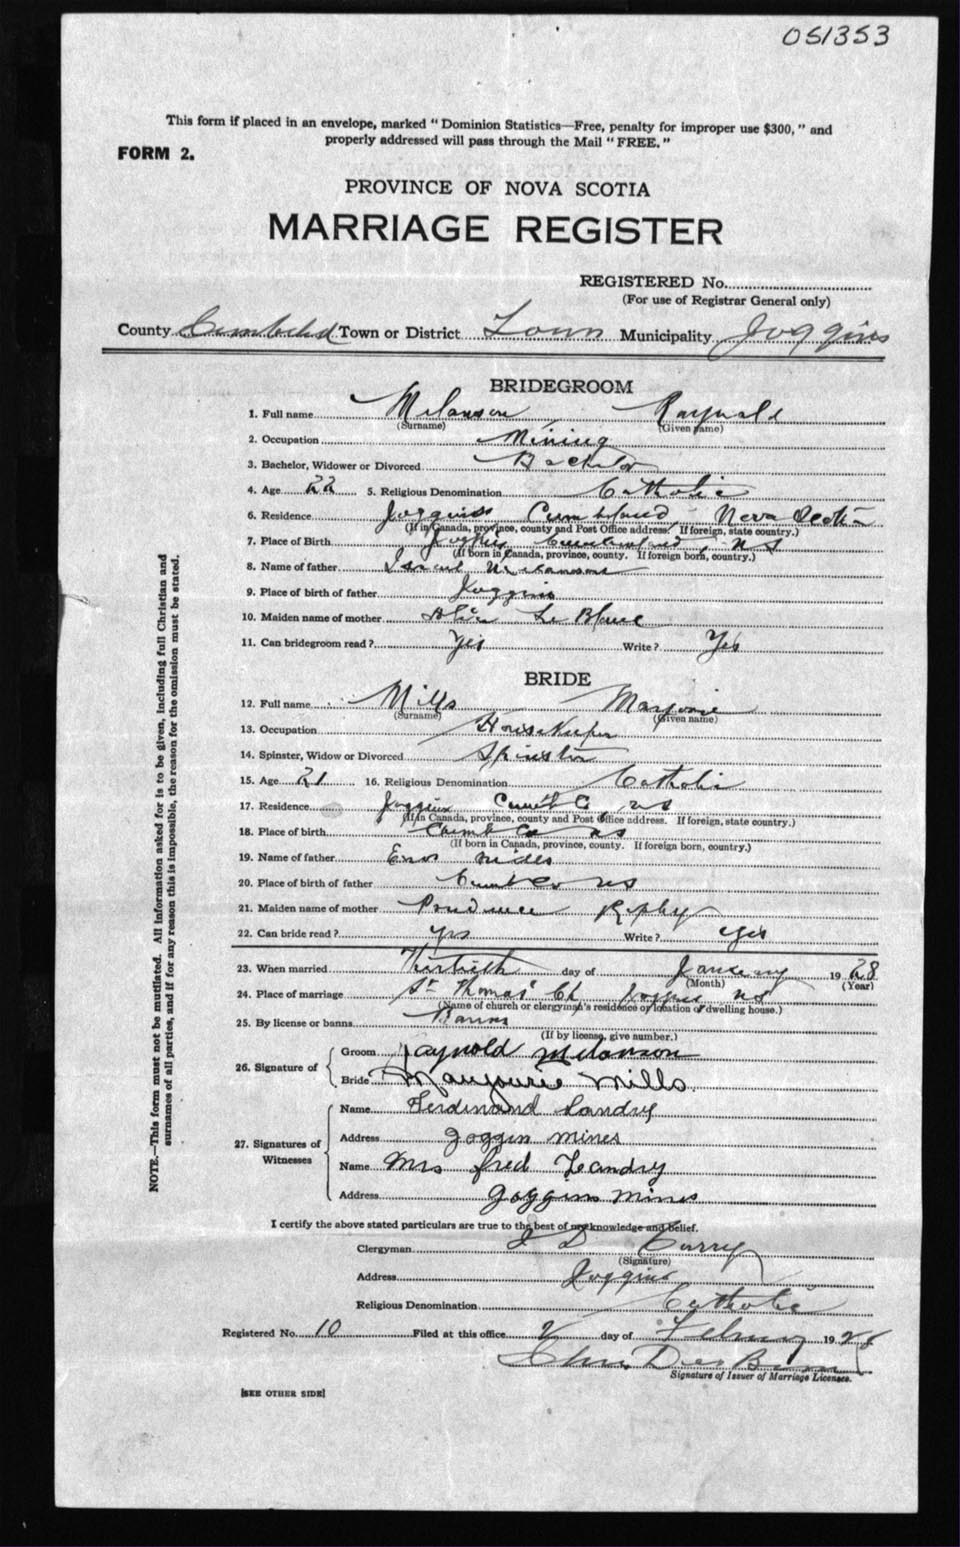 051353
This form if placed in an envelope, marked "Dominion Statistics—Free, penalty for improper use $300," and
properly addressed will pass through the Mail "FREE."
FORM 2.
PROVINCE OF NOVA SCOTIA
MARRIAGE REGISTER
REGISTERED No.
(For use of Registrar General only)
County Town or District Town Municipality Joggins
BRIDEGROOM
1. Full name Melanson Raynald
(Surname) (Given name)
2. Occupation Mining
3. Bachelor, Widower or Divorced Bachelor
4. Age 22 5. Religious Denomination Catholic
6. Residence Joggins Cumberland Nova Scotia
(If in Canada, province, county and Post Office address. If foreign, state country.)
7. Place of Birth Joggins Cumberland, NS
(If born in Canada, province, county. If foreign born, country.)
8. Name of father Israel Melanson
9. Place of birth of father Joggins
10. Maiden name of mother Le Blanc
11. Can bridegroom read? Yes Write? Yes
BRIDE
12. Full name Mills Marjorie
(Surname) (Given name)
13. Occupation HouseKeeper
14. Spinster, Widow or Divorced Spinster
15. Age 21 16. Religious Denomination Catholic
17. Residence Joggins Cumb Co NS
(If in Canada, province, county and Post Office address. If foreign, state country.)
18. Place of birth Cumb Co NS
(If born in Canada, province, county. If foreign born, country.)
19. Name of father Mills
20. Place of birth of father Cumb Co NS
21. Maiden name of mother Prudence Ripley
22. Can bride read? Yes Write? Yes
23. When married Thirtieth day of January 1928
(Month) (Year)
24. Place of marriage St Thomas' Ch Joggins NS
(Name of church or clergyman's residence or location of dwelling house.)
25. By license or banns Banns
(If by license, give number.)
26. Signature of
Groom Raynold Melanson
Bride Marjourie Mills
27. Signatures of Witnesses
Name Ferdinand Landry
Address Joggin mines
Name Mrs fred Leandry
Address Joggins mines
I certify the above stated particulars are true to the best of my knowledge and belief.
Clergyman J D Curry
(Signature)
Address Joggins
Religious Denomination Catholic
Registered No. 10 Filed at this office 2 day of February 1928
Signature of Issuer of Marriage Licenses.
[SEE OTHER SIDE]
NOTE.—This form must not be mutilated. All information asked for is to be given, including full Christian and
surnames of all parties, and if for any reason this is impossible, the reason for the omission must be stated.